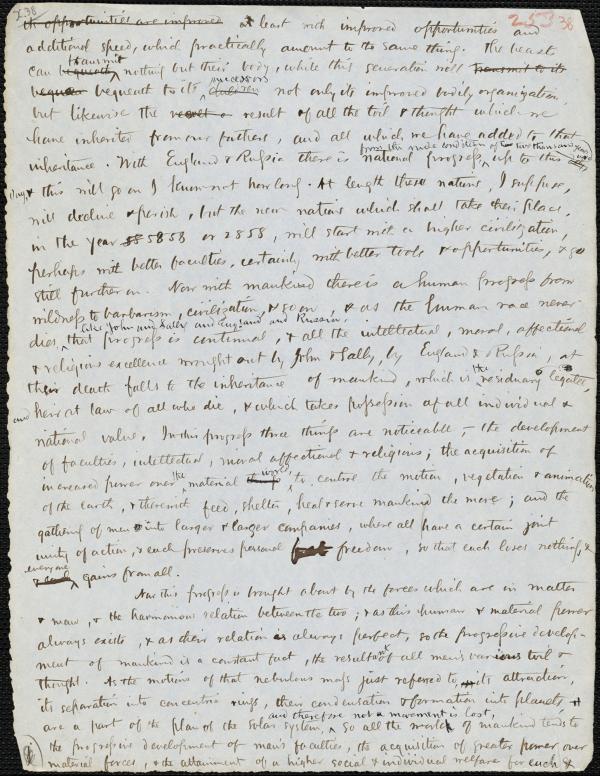 238
253 38
th opportunities are improved at least with improved opportunities and
additional speed, which practically amount to the same thing. The beast
can bequeath transmit nothing but their body, while this generation will transmit to its
bequeath to its children successors not only its improved bodily organization,
but likewise the result of all the toil & thought which we
have inherited from our fathers, and all which we have added to that
from the rude condition of two thousand years ago
inheritance. With England & Russia there is national progress, up to this
day, & this will go on I know not how long. At length these nations, I suppose,
will decline & perish, but the new nations which shall take their place,
in the year 5858 or 2858, will start not a higher civilization,
perhaps with better faculties, certainly with better tools & opportunities, & go
still further on. Now with mankind there is a human progress from
wildness to barbarism, civilization, & so on, & as the human race never
like John and Sally and England and Russia,
dies, that progress is continual, & all the intellectual, moral, affectional
& religious excellence wrought out by John & Sally, by England & Russia, at
their death falls to the inheritance of mankind, which is the residuary legatee,
and heir at law of all who die, & which takes possession of all individual &
national value. In this progress three things are noticeable, – the development
of faculties, intellectual, moral affectional & religious; the acquisition of
increased power over the material world, to control the motion, vegetation & animation
of the earth, & therewith feed, shelter, heal & serve mankind the more; and the
gathering of men into larger & larger companies, where all have a certain joint
unity of action, & each preserves personal freedom, so that each loses nothing, &
everyone
gains from all.
Now this progress is brought about by the forces which are in matter
& man, & the harmonious relation between the two; & as this human & material power
always exists, & as their relation is always perfect, so the progressive develop-
ment of mankind is a constant fact, the resultant of all men's various toil &
thought. As the motions of that nebulous mass just referred to, its attraction,
its separation into concentric rings, their condensation & formation into planets,
and therefore not a movement is lost,
are a part of the plan of the Solar System, so all the work of mankind tends to
the progressive development of man's faculties, the acquisition of greater power over
material forces, & the attainment of a higher social & individual welfare for each &